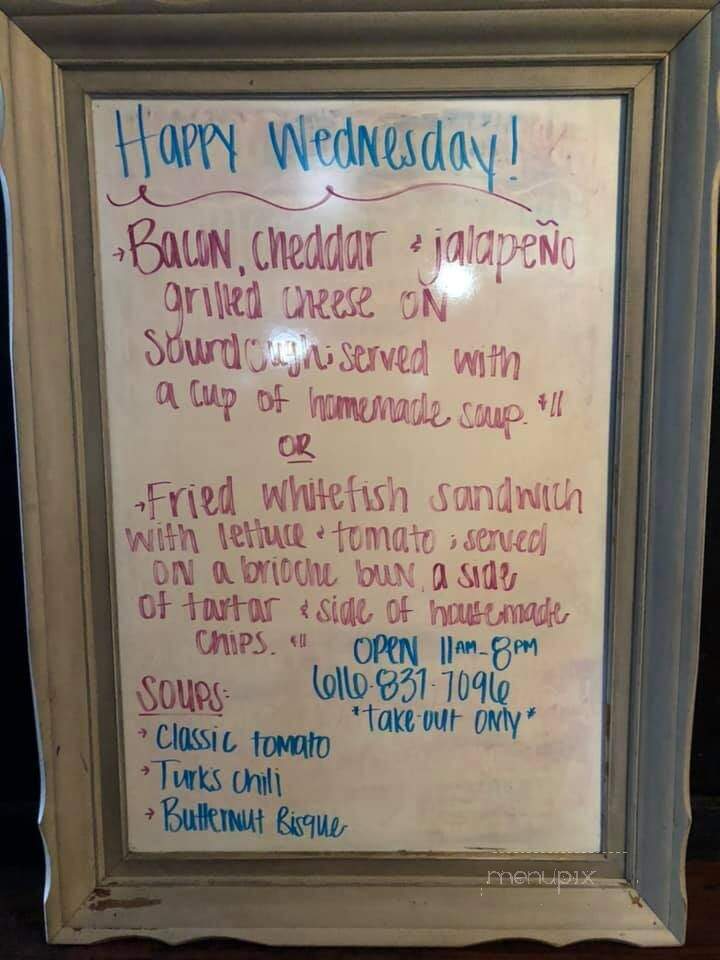 Happy Wednesday!
→Bacon, cheddar & jalapeño
grilled cheese on
sourdough; served with
a cup of homemade soup. $11
OR
→Fried whitefish sandwich
with lettuce & tomato; served
on a brioche bun, a side
of tartar & side of housemade
chips. $11
OPEN 11AM-8PM
616·837·7096
*take-out only*
Soups:
→ Classic tomato
→ Turk's chili
→ Butternut Bisque
menupix